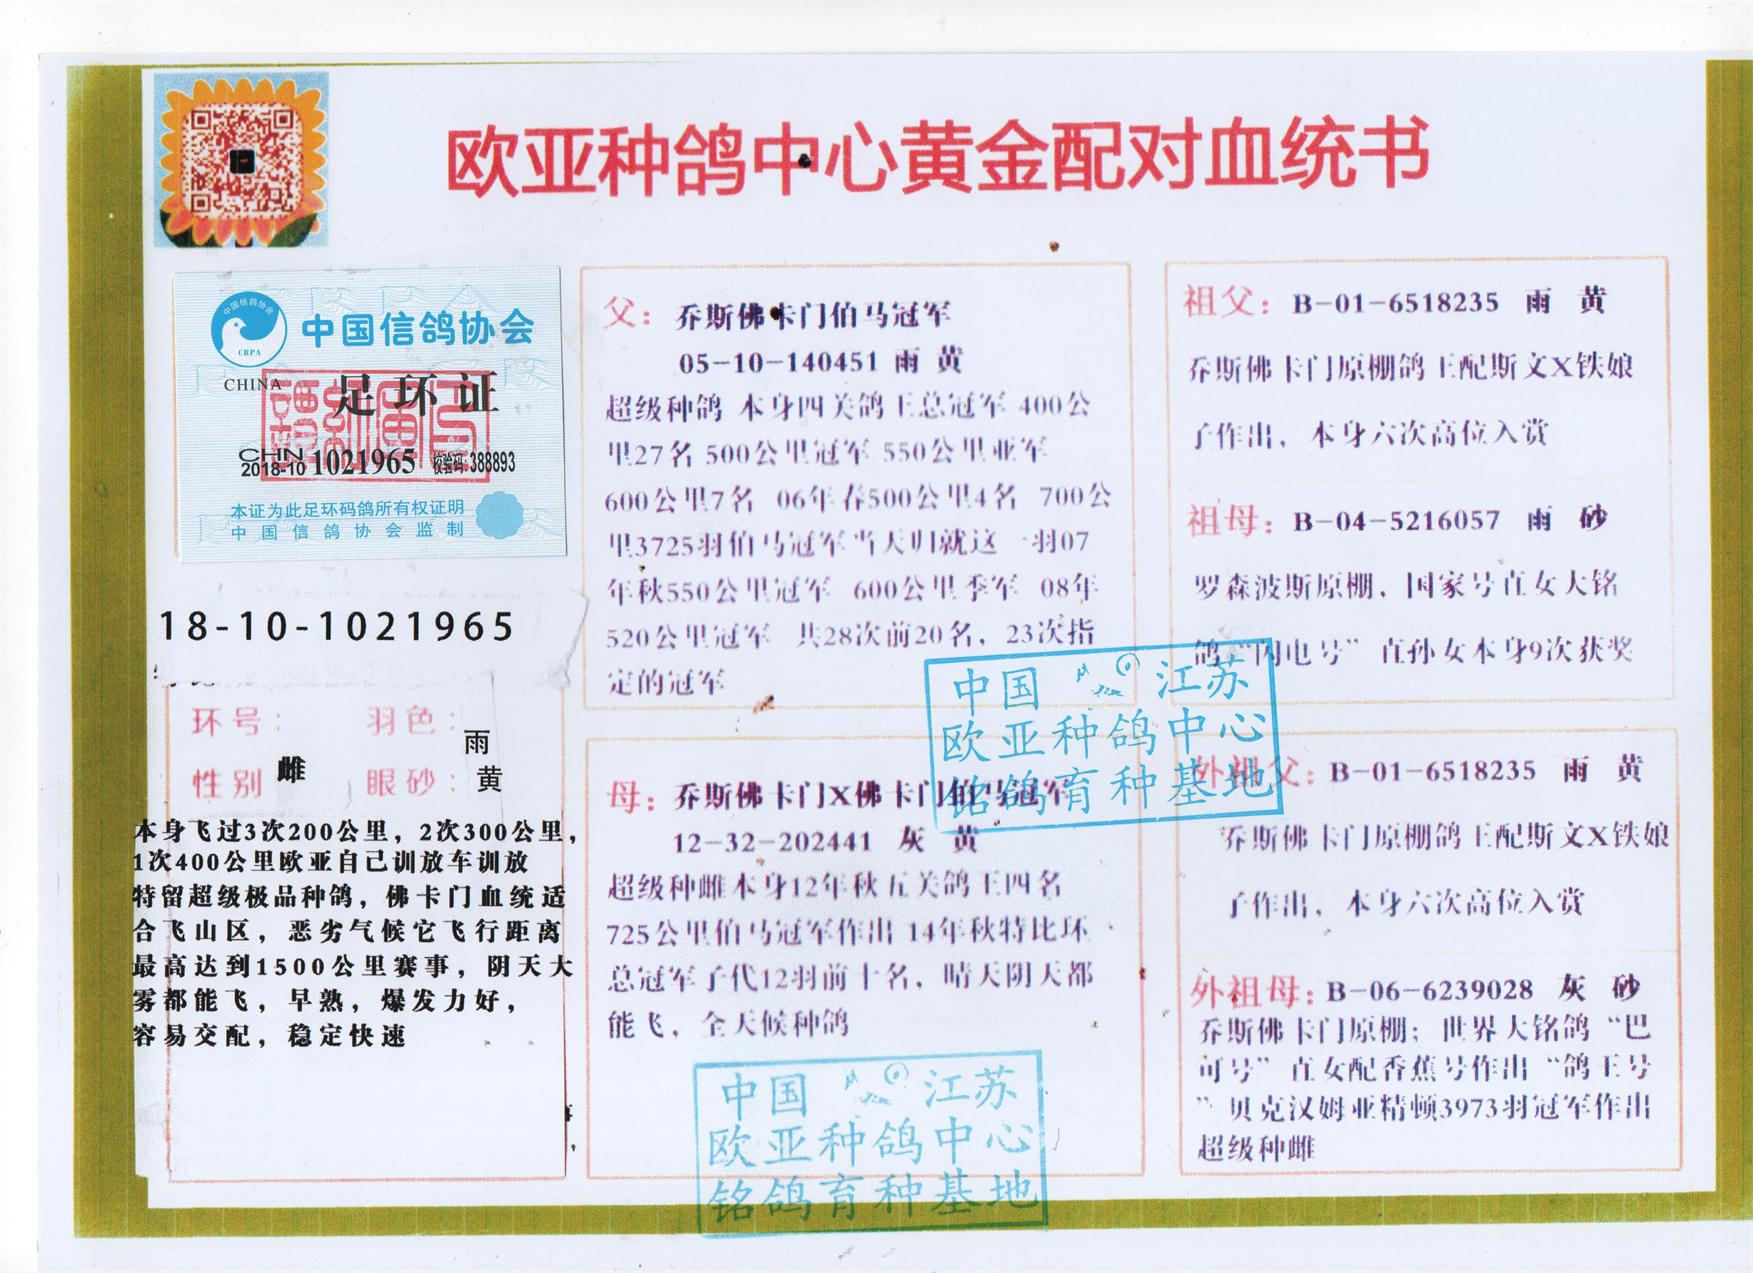 欧亚种鸽中心黄金配对血统书
中国信鸽协会
CRPA
中国信鸽协会
CHINA
足环证
CHN
2018-10 1021965 校验码:388893
本证为此足环码鸽所有权证明
中国信鸽协会监制
18-10-1021965
环号： 羽色：雨
性别 雌 眼砂：黄
本身飞过3次200公里，2次300公里，
1次400公里欧亚自己训放车训放
特留超级极品种鸽，佛卡门血统适
合飞山区，恶劣气候它飞行距离
最高达到1500公里赛事，阴天大
雾都能飞，早熟，爆发力好，
容易交配，稳定快速
父：乔斯佛卡门伯马冠军
05-10-140451 雨 黄
超级种鸽 本身四关鸽王总冠军 400公
里27名 500公里冠军 550公里亚军
600公里7名 06年春500公里4名 700公
里3725羽伯马冠军当天归就这一羽07
年秋550公里冠军 600公里季军 08年
520公里冠军 共28次前20名，23次指
定的冠军
母：乔斯佛卡门X佛卡门伯马冠军
12-32-202441 灰 黄
超级种雌本身12年秋五关鸽王四名
725公里伯马冠军作出 14年秋特比环
总冠军子代12羽前十名，晴天阴天都
能飞，全天候种鸽
祖父：B-01-6518235 雨 黄
乔斯佛卡门原棚鸽王配斯文X铁娘
子作出，本身六次高位入赏
祖母：B-04-5216057 雨 砂
罗森波斯原棚，国家号直女大铭
鸽“闪电号”直孙女本身9次获奖
外祖父：B-01-6518235 雨 黄
乔斯佛卡门原棚鸽王配斯文X铁娘
子作出，本身六次高位入赏
外祖母：B-06-6239028 灰 砂
乔斯佛卡门原棚；世界大铭鸽“巴
可号”直女配香蕉号作出“鸽王号
”贝克汉姆亚精顿3973羽冠军作出
超级种雌
中国 江苏
欧亚种鸽中心
铭鸽育种基地
中国 江苏
欧亚种鸽中心
铭鸽育种基地